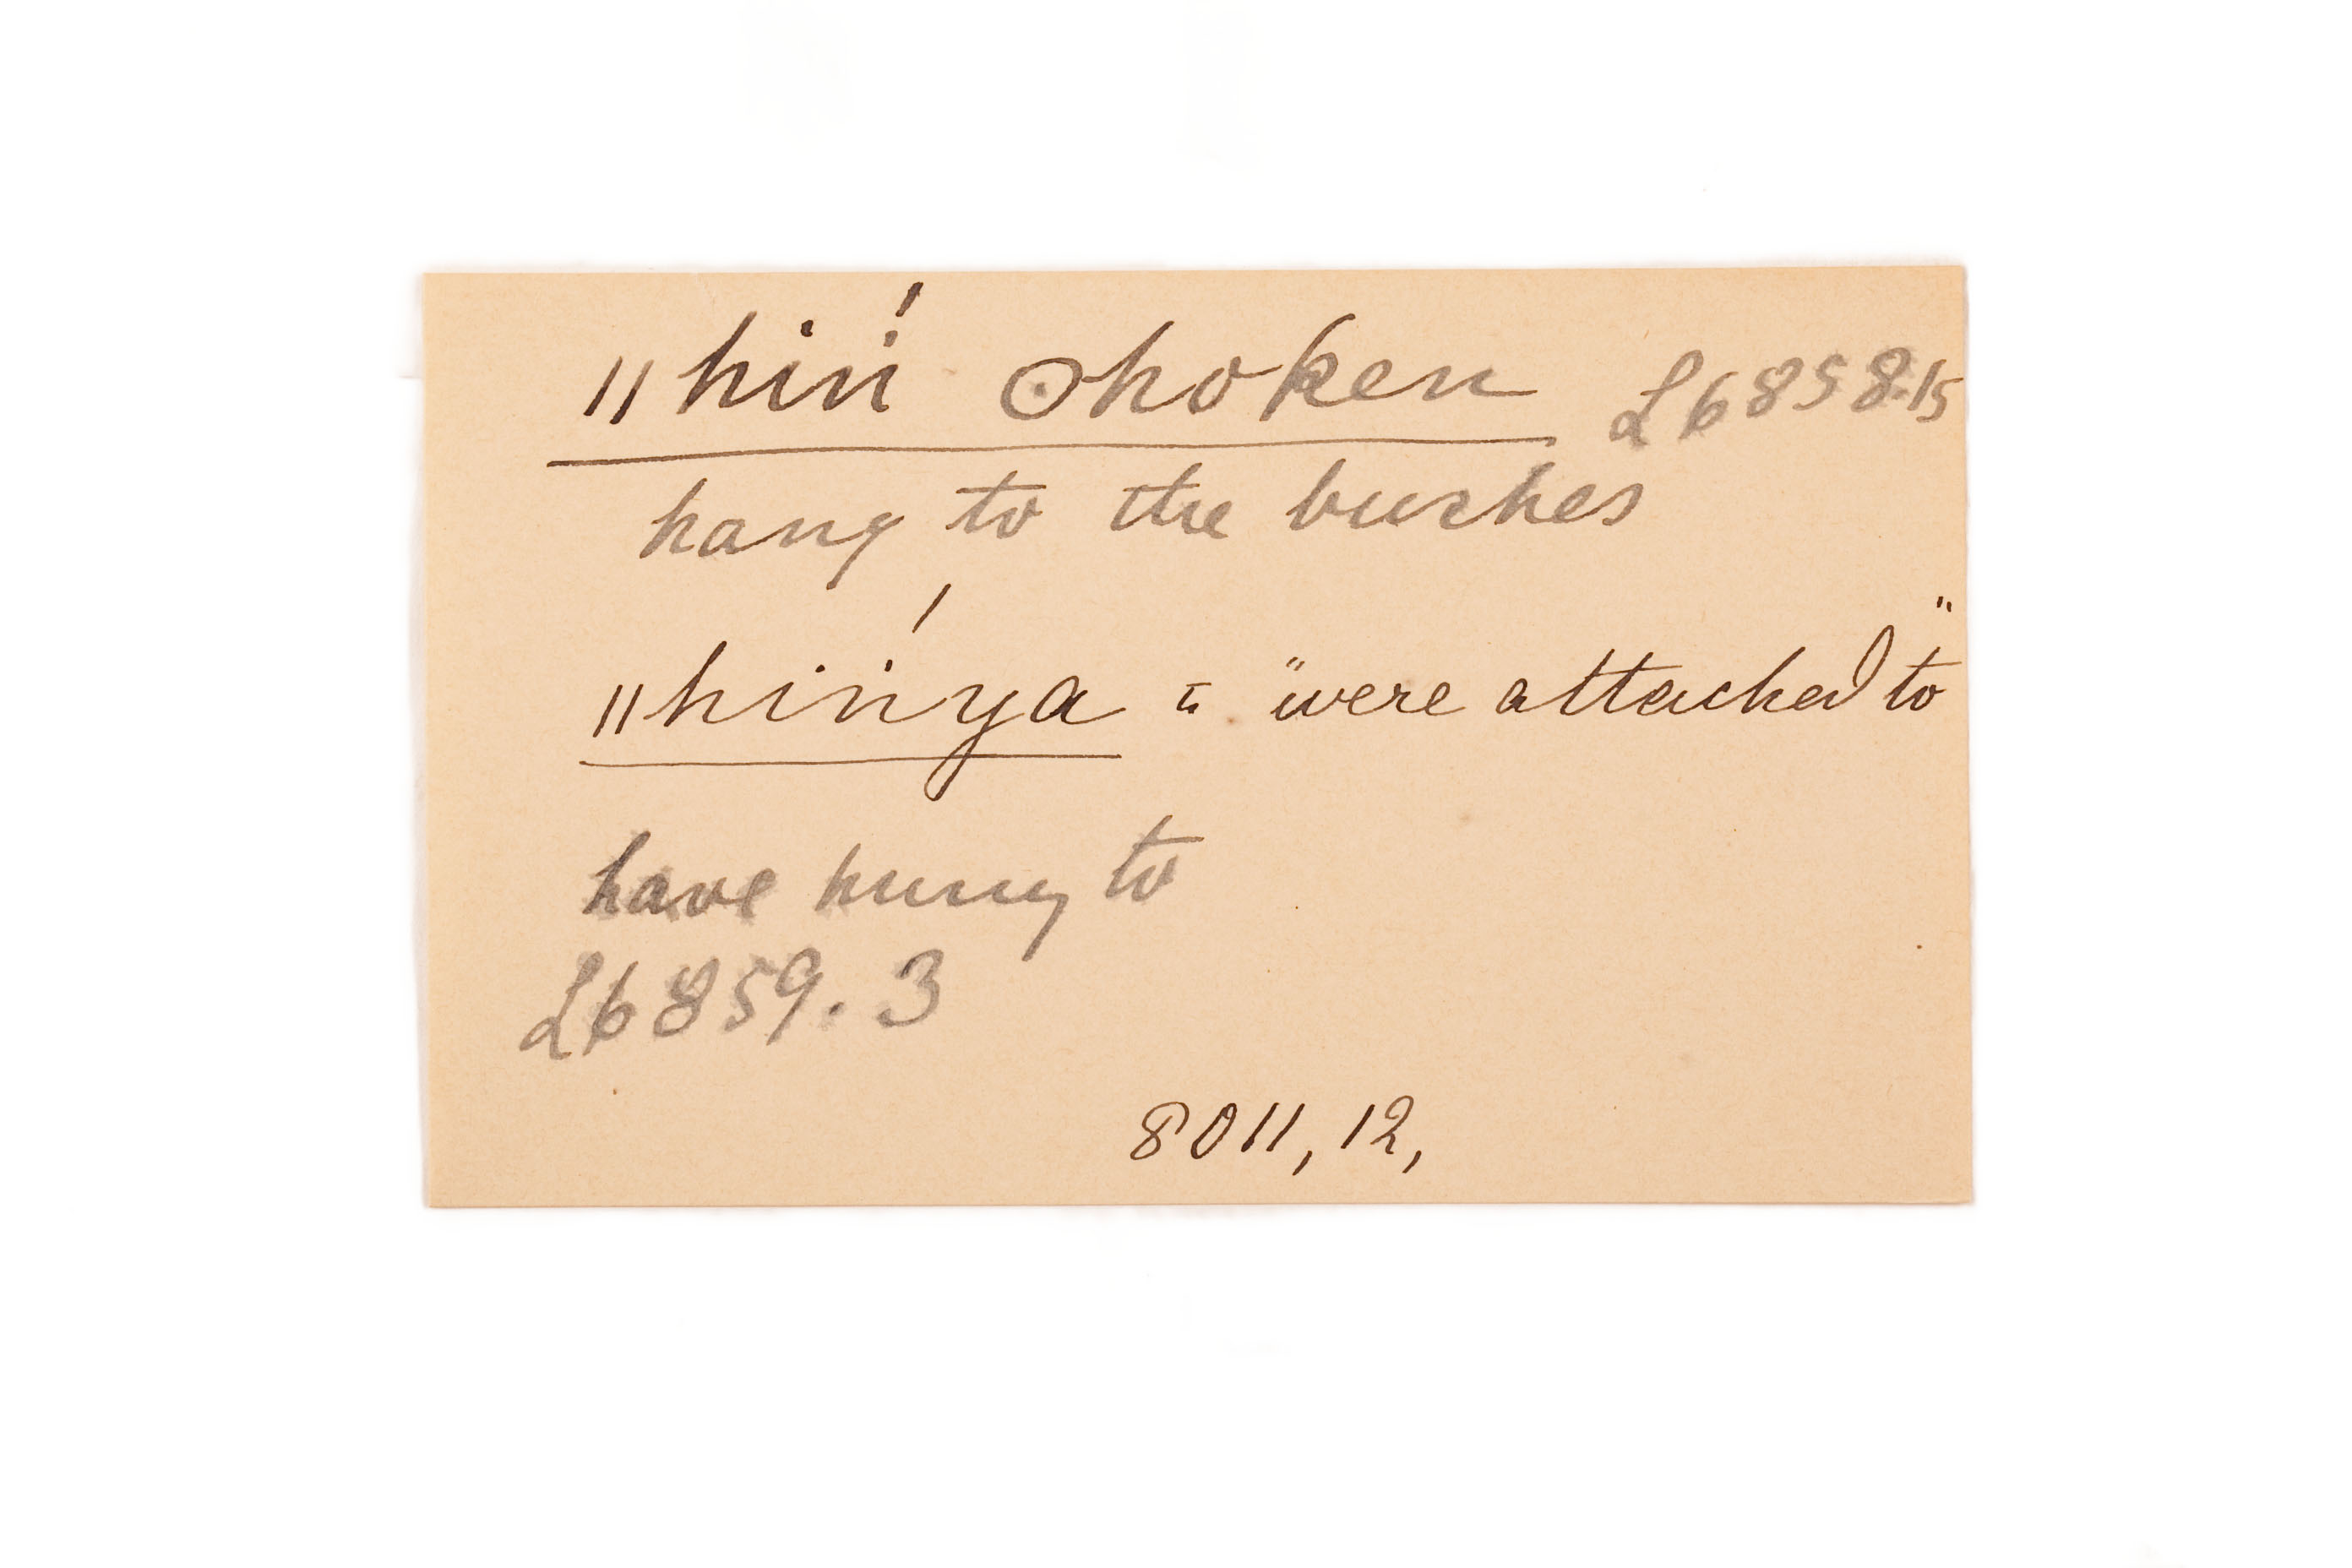 ǁhiń ʘhoken L6858.15
hang to the bushes
ǁhińya = "were attached to"
have hung to
L6859.3
8011, 12,